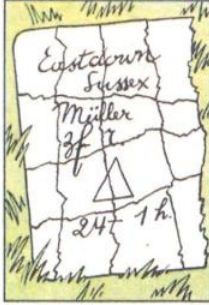 Eastdown
Sussex
Müller
3f r.
24 - 1 h.